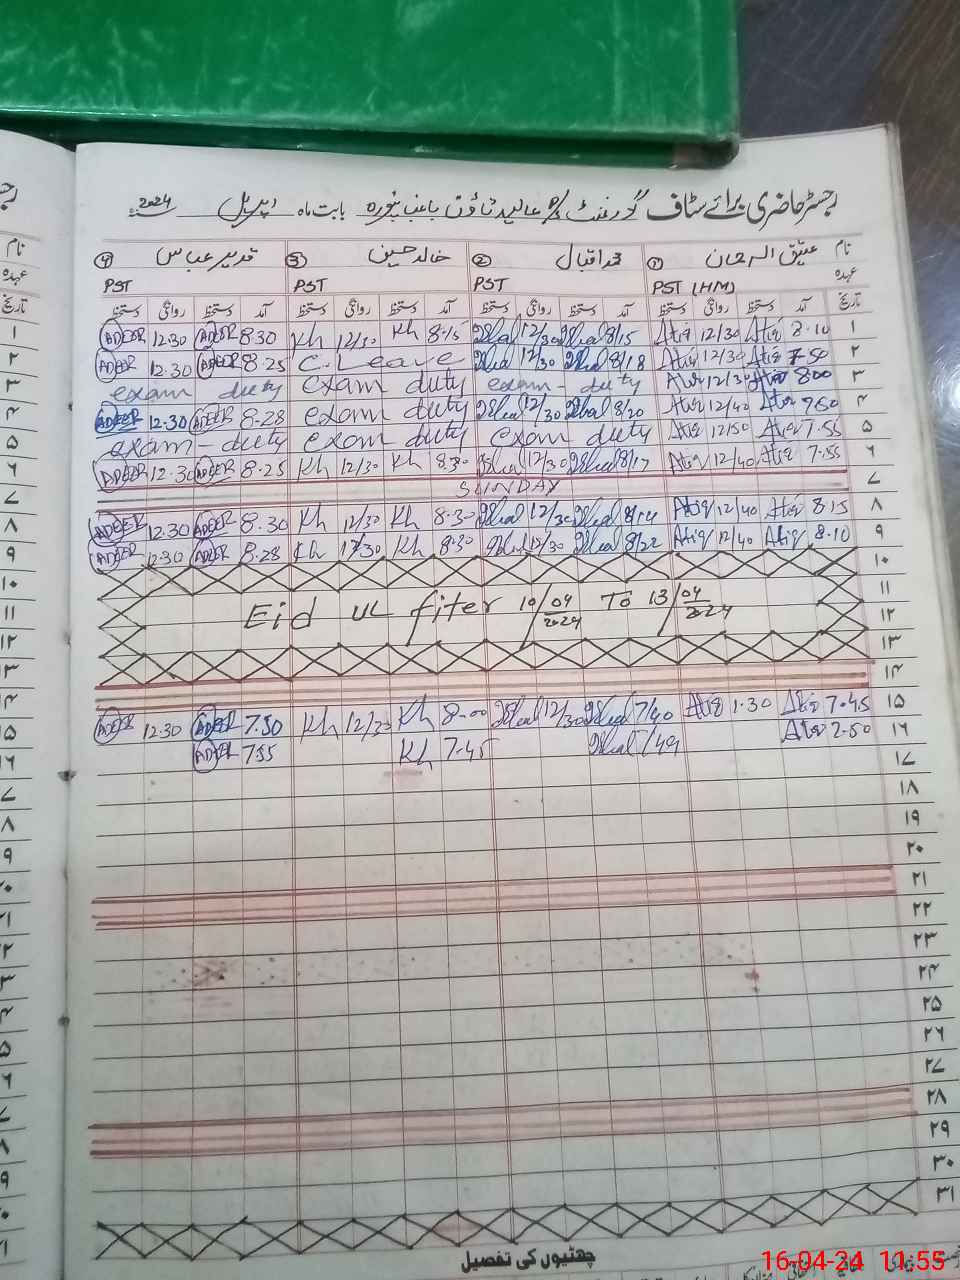 رجسٹر حاضری برائے سٹاف گورنمنٹ P/S عالیہ ٹاؤن باغبانپورہ بابت ماہ اپریل 2024
نام عتیق الرحمان ① محمد اقبال ② خالد حسین ③ قدیر عباس ④
عہدہ PST (HM) PST PST PST
تاریخ آمد دستخط روانگی دستخط آمد دستخط روانگی دستخط آمد دستخط روانگی دستخط آمد دستخط روانگی دستخط
۱ 8.10 Atiq 12/30 Atiq 8/15 Iqbal 12/30 Iqbal 8.15 Kh 12/30 Kh 8.30 ADEER 12.30 ADEER
۲ 7.50 Atiq 12/30 Atiq 8/18 Iqbal 12/30 Iqbal C. Leave 8.25 ADEER 12.30 ADEER
۳ 8.00 Atiq 12/30 Atiq exam - duty exam duty exam duty
۴ 7.50 Atiq 12/40 Atiq 8/20 Iqbal 12/30 Iqbal exam duty 8.28 ADEER 12.30 ADEER
۵ 7.55 Atiq 12/50 Atiq exam duty exam duty exam - duty
۶ 7.55 Atiq 12/40 Atiq 8/17 Iqbal 12/30 Iqbal 8.30 Kh 12/30 Kh 8.25 ADEER 12.30 ADEER
۷ SUNDAY
۸ 8.15 Atiq 12/40 Atiq 8/14 Iqbal 12/30 Iqbal 8.30 Kh 12/30 Kh 8.30 ADEER 12.30 ADEER
۹ 8.10 Atiq 12/40 Atiq 8/22 Iqbal 12/30 Iqbal 8.30 Kh 12/30 Kh 8.28 ADEER 12.30 ADEER
۱۰
۱۱ Eid UL fiter 10/04/2024 To 13/04/2024
۱۲
۱۳
۱۴
۱۵ 7.45 Atiq 1.30 Atiq 7/40 Iqbal 12/30 Iqbal 8.00 Kh 12/30 Kh 7.50 ADEER 12.30 ADEER
۱۶ 7.50 Atiq 7/49 Iqbal 7.45 Kh 7.55 ADEER
۱۷
۱۸
۱۹
۲۰
۲۱
۲۲
۲۳
۲۴
۲۵
۲۶
۲۷
۲۸
۲۹
۳۰
۳۱
چھٹیوں کی تفصیل
16-04-24 11:55